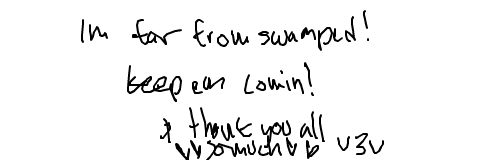 Im far from swamped!
keep em comin!
& thank you all
so much v3v